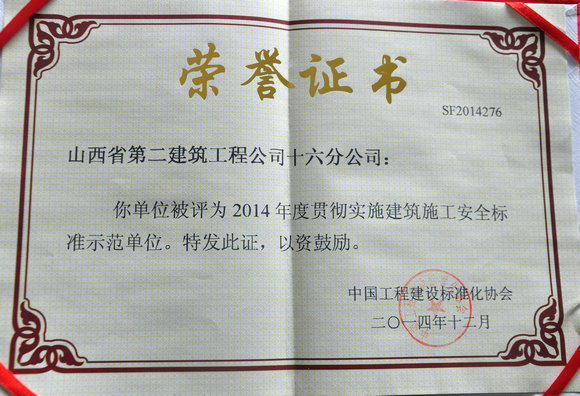 荣誉证书
SF2014276
山西省第二建筑工程公司十六分公司：
你单位被评为 2014 年度贯彻实施建筑施工安全标
准示范单位。特发此证，以资鼓励。
中国工程建设标准化协会
二〇一四年十二月